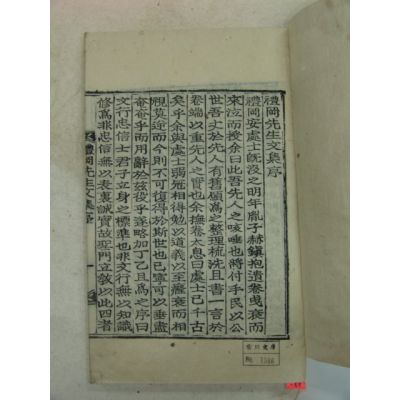 禮岡先生文集序
禮岡安處士旣沒之明年胤子赫鎭抱遺卷曵衰而
來泣而授余曰此吾先人之咳唾也將付手民以公
世吾丈於先人有舊願爲之整理梳洗且書一言於
卷端以重先人之實也余撫卷太息曰處士已千古
矣乎余與處士弱冠相得勉以道義以至癃衰而相
視莫逆而今則不可復得於斯世也已寧可以垂
奄奄乎而用辭於玆役乎遂略加丁乙且爲之序曰
文行忠信士君子立身之標準也非文行無以知識
修爲非忠信無以表裏誠實故聖門立敎以此四者
禮岡先生文集序
一